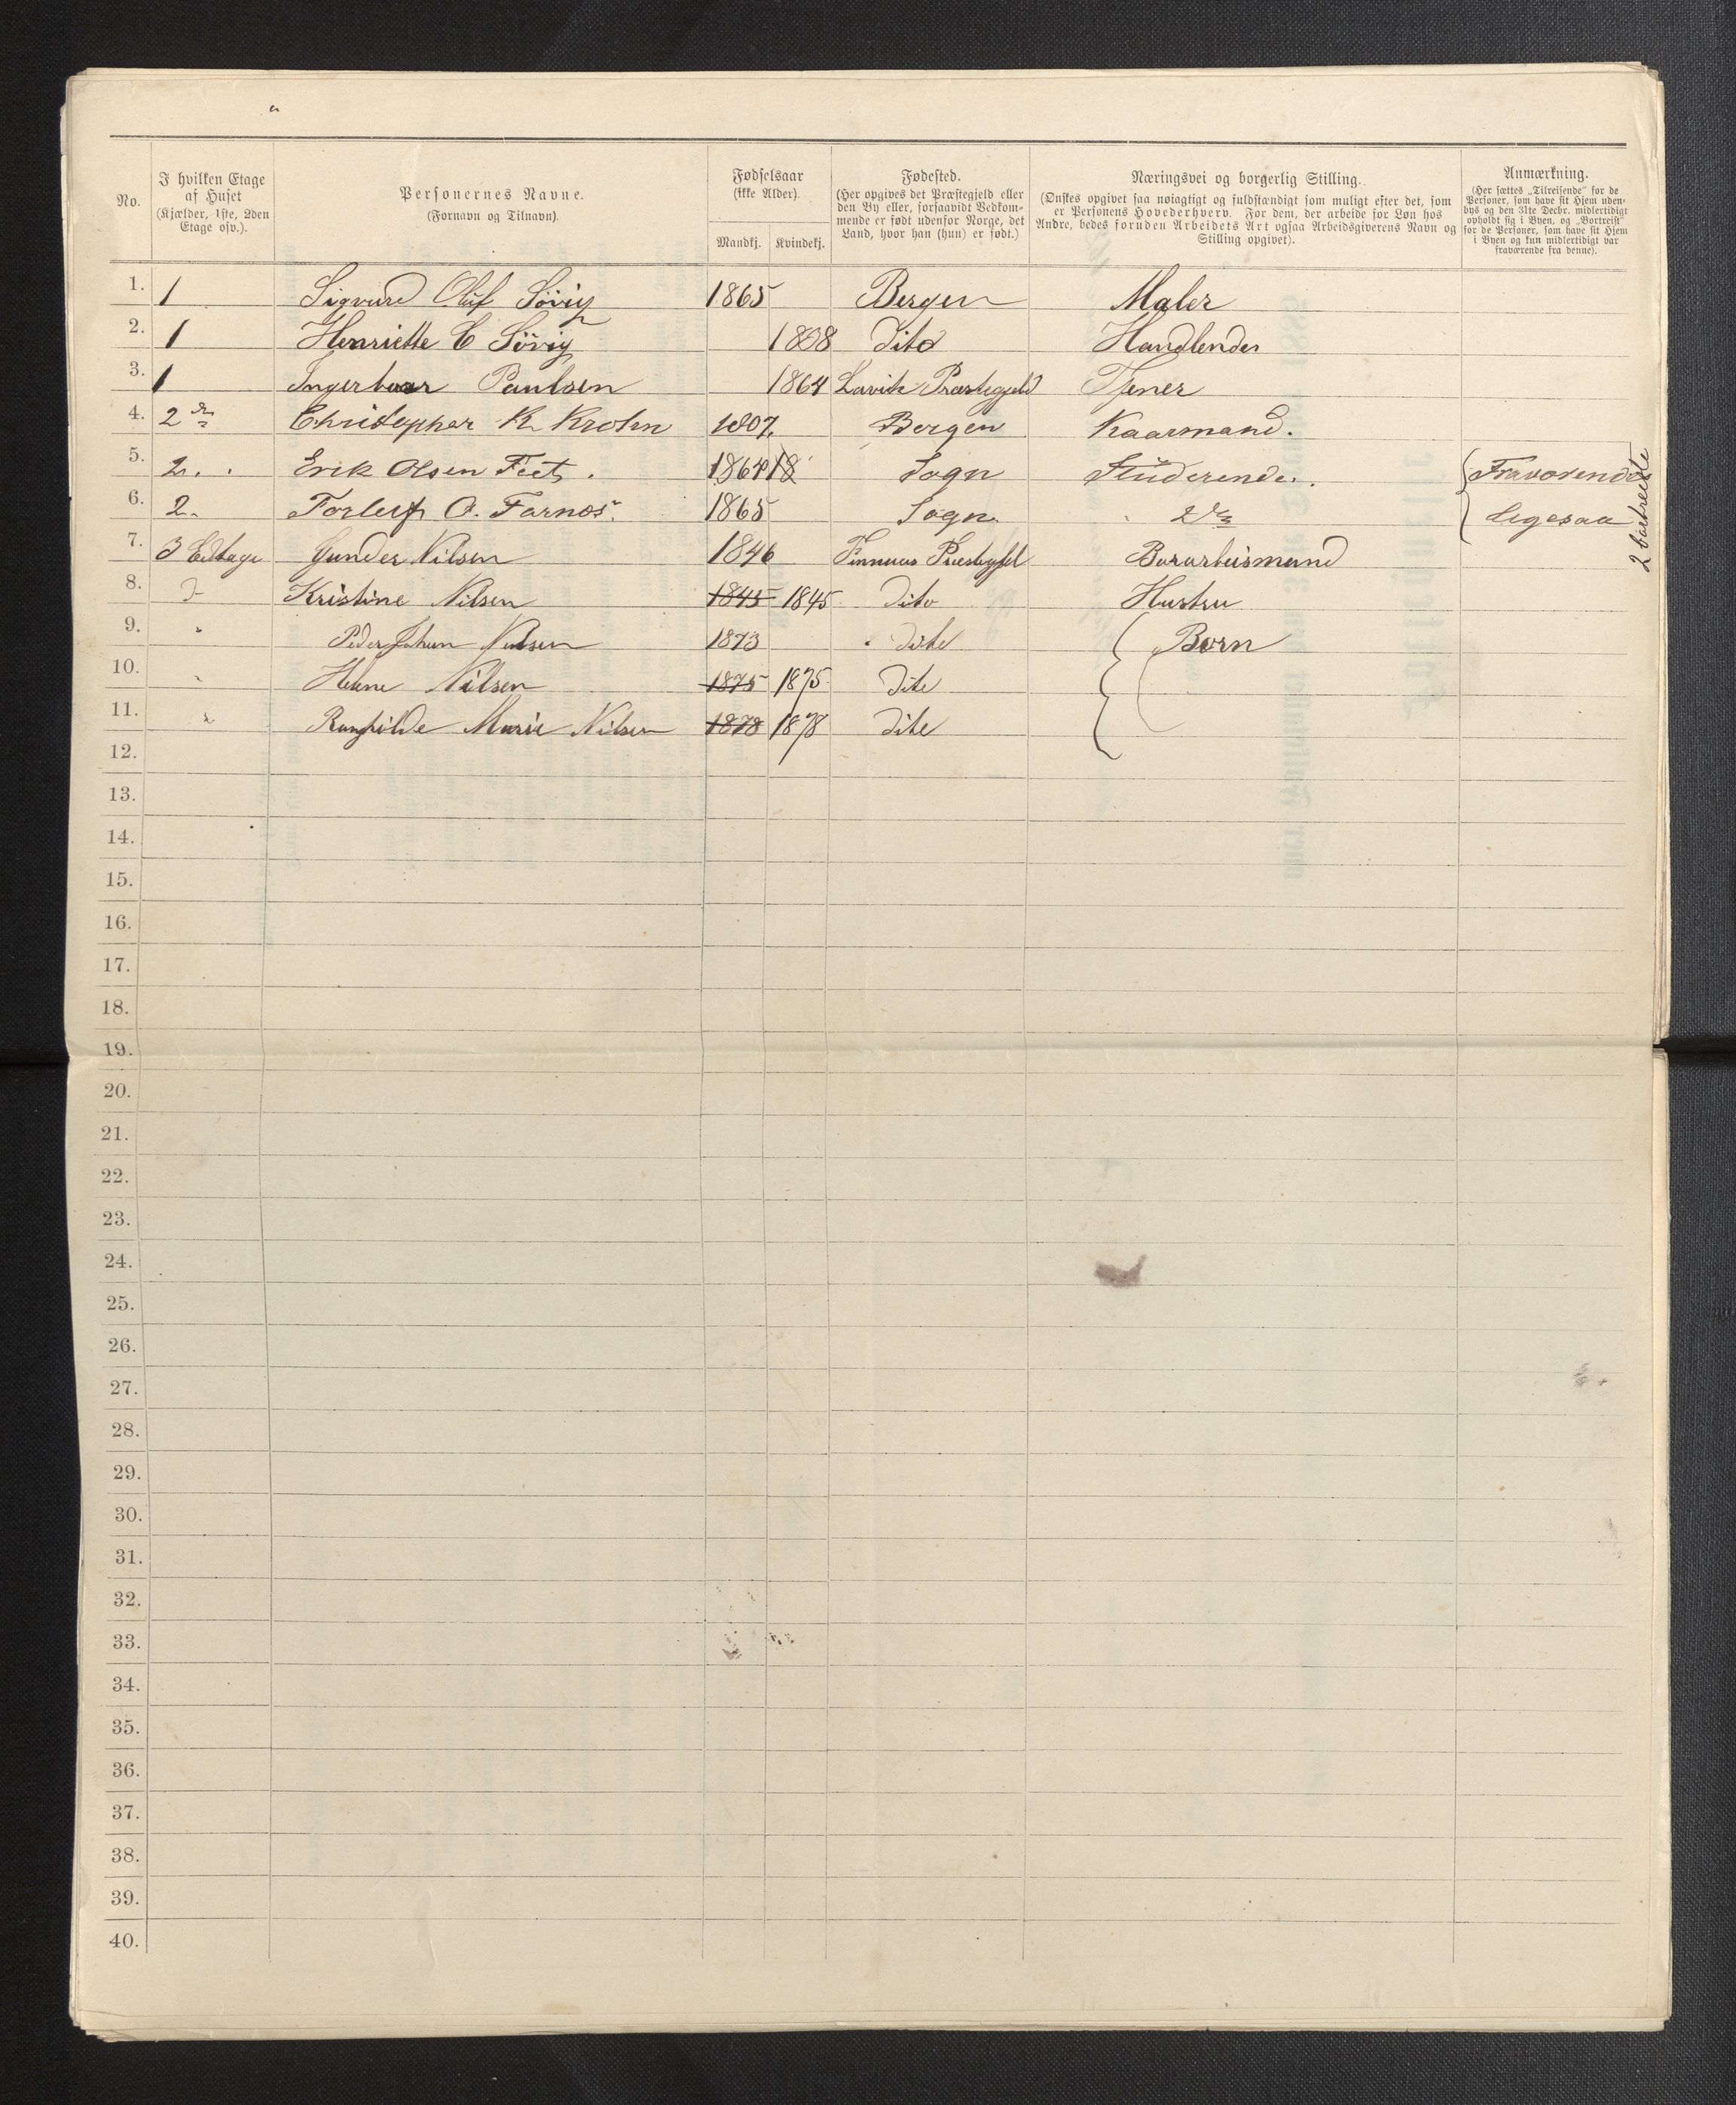 No.
I hvilken Etage af Huset (Kjælder, 1ste, 2den Etage osv.).
Personernes Navne. (Fornavn og Tilnavn).
Fødselsaar (ikke Alder).
Mandkj. Kvindekj.
Fødested. (Her opgives det Præstegjeld eller den By eller, forsaavidt Vedkommende er født udenfor Norge, det Land, hvor han (hun) er født.)
Næringsvei og borgerlig Stilling. (Ønskes opgivet saa nøiagtigt og fuldstændigt som muligt efter det, som er Personens Hovederhverv. For dem, der arbeide for Løn hos Andre, bedes foruden Arbeidets Art ogsaa Arbeidsgiverens Navn og Stilling opgivet).
Anmærkning. (Her sættes „Tilreisende“ for de Personer, som have sit Hjem udenbys og den 31te Decbr. midlertidigt opholdt sig i Byen, og „Bortreist“ for de Personer, som have sit Hjem i Byen og kun midlertidigt var fraværende fra denne).
1. 1 Sigvard Oluf Sövig 1865 Bergen Maler
2. 1 Henriette C Sövig 1838 Dito Handlende
3. 1 Paulsen 1864 Lavik Præstegjeld Tjener
4. 2den Christopher K. Krohn 1807. Bergen Kaarmand.
5. 2. Erik Olsen Feet. 1864 18 Sogn Studerende. Fraværende
6. 2. Torleif O. Farnes. 1865 Sogn. Do ligesaa
2 bortreiste
7. 3 Edtage Gunder Nilsen 1846 Finnaas Præstegjeld
8. Do Kristine Nilsen 1845 1845 Dito Hustru
9. " Peder Johan Nilsen 1873 Dito Børn
10. " Helene Nilsen 1875 1875 Dito
11. " Ranghilde Marie Nilsen 1878 1878 Dito
12.
13.
14.
15.
16.
17.
18.
19.
20.
21.
22.
23.
24.
25.
26.
27.
28.
29.
30.
31.
32.
33.
34.
35.
36.
37.
38.
39.
40.